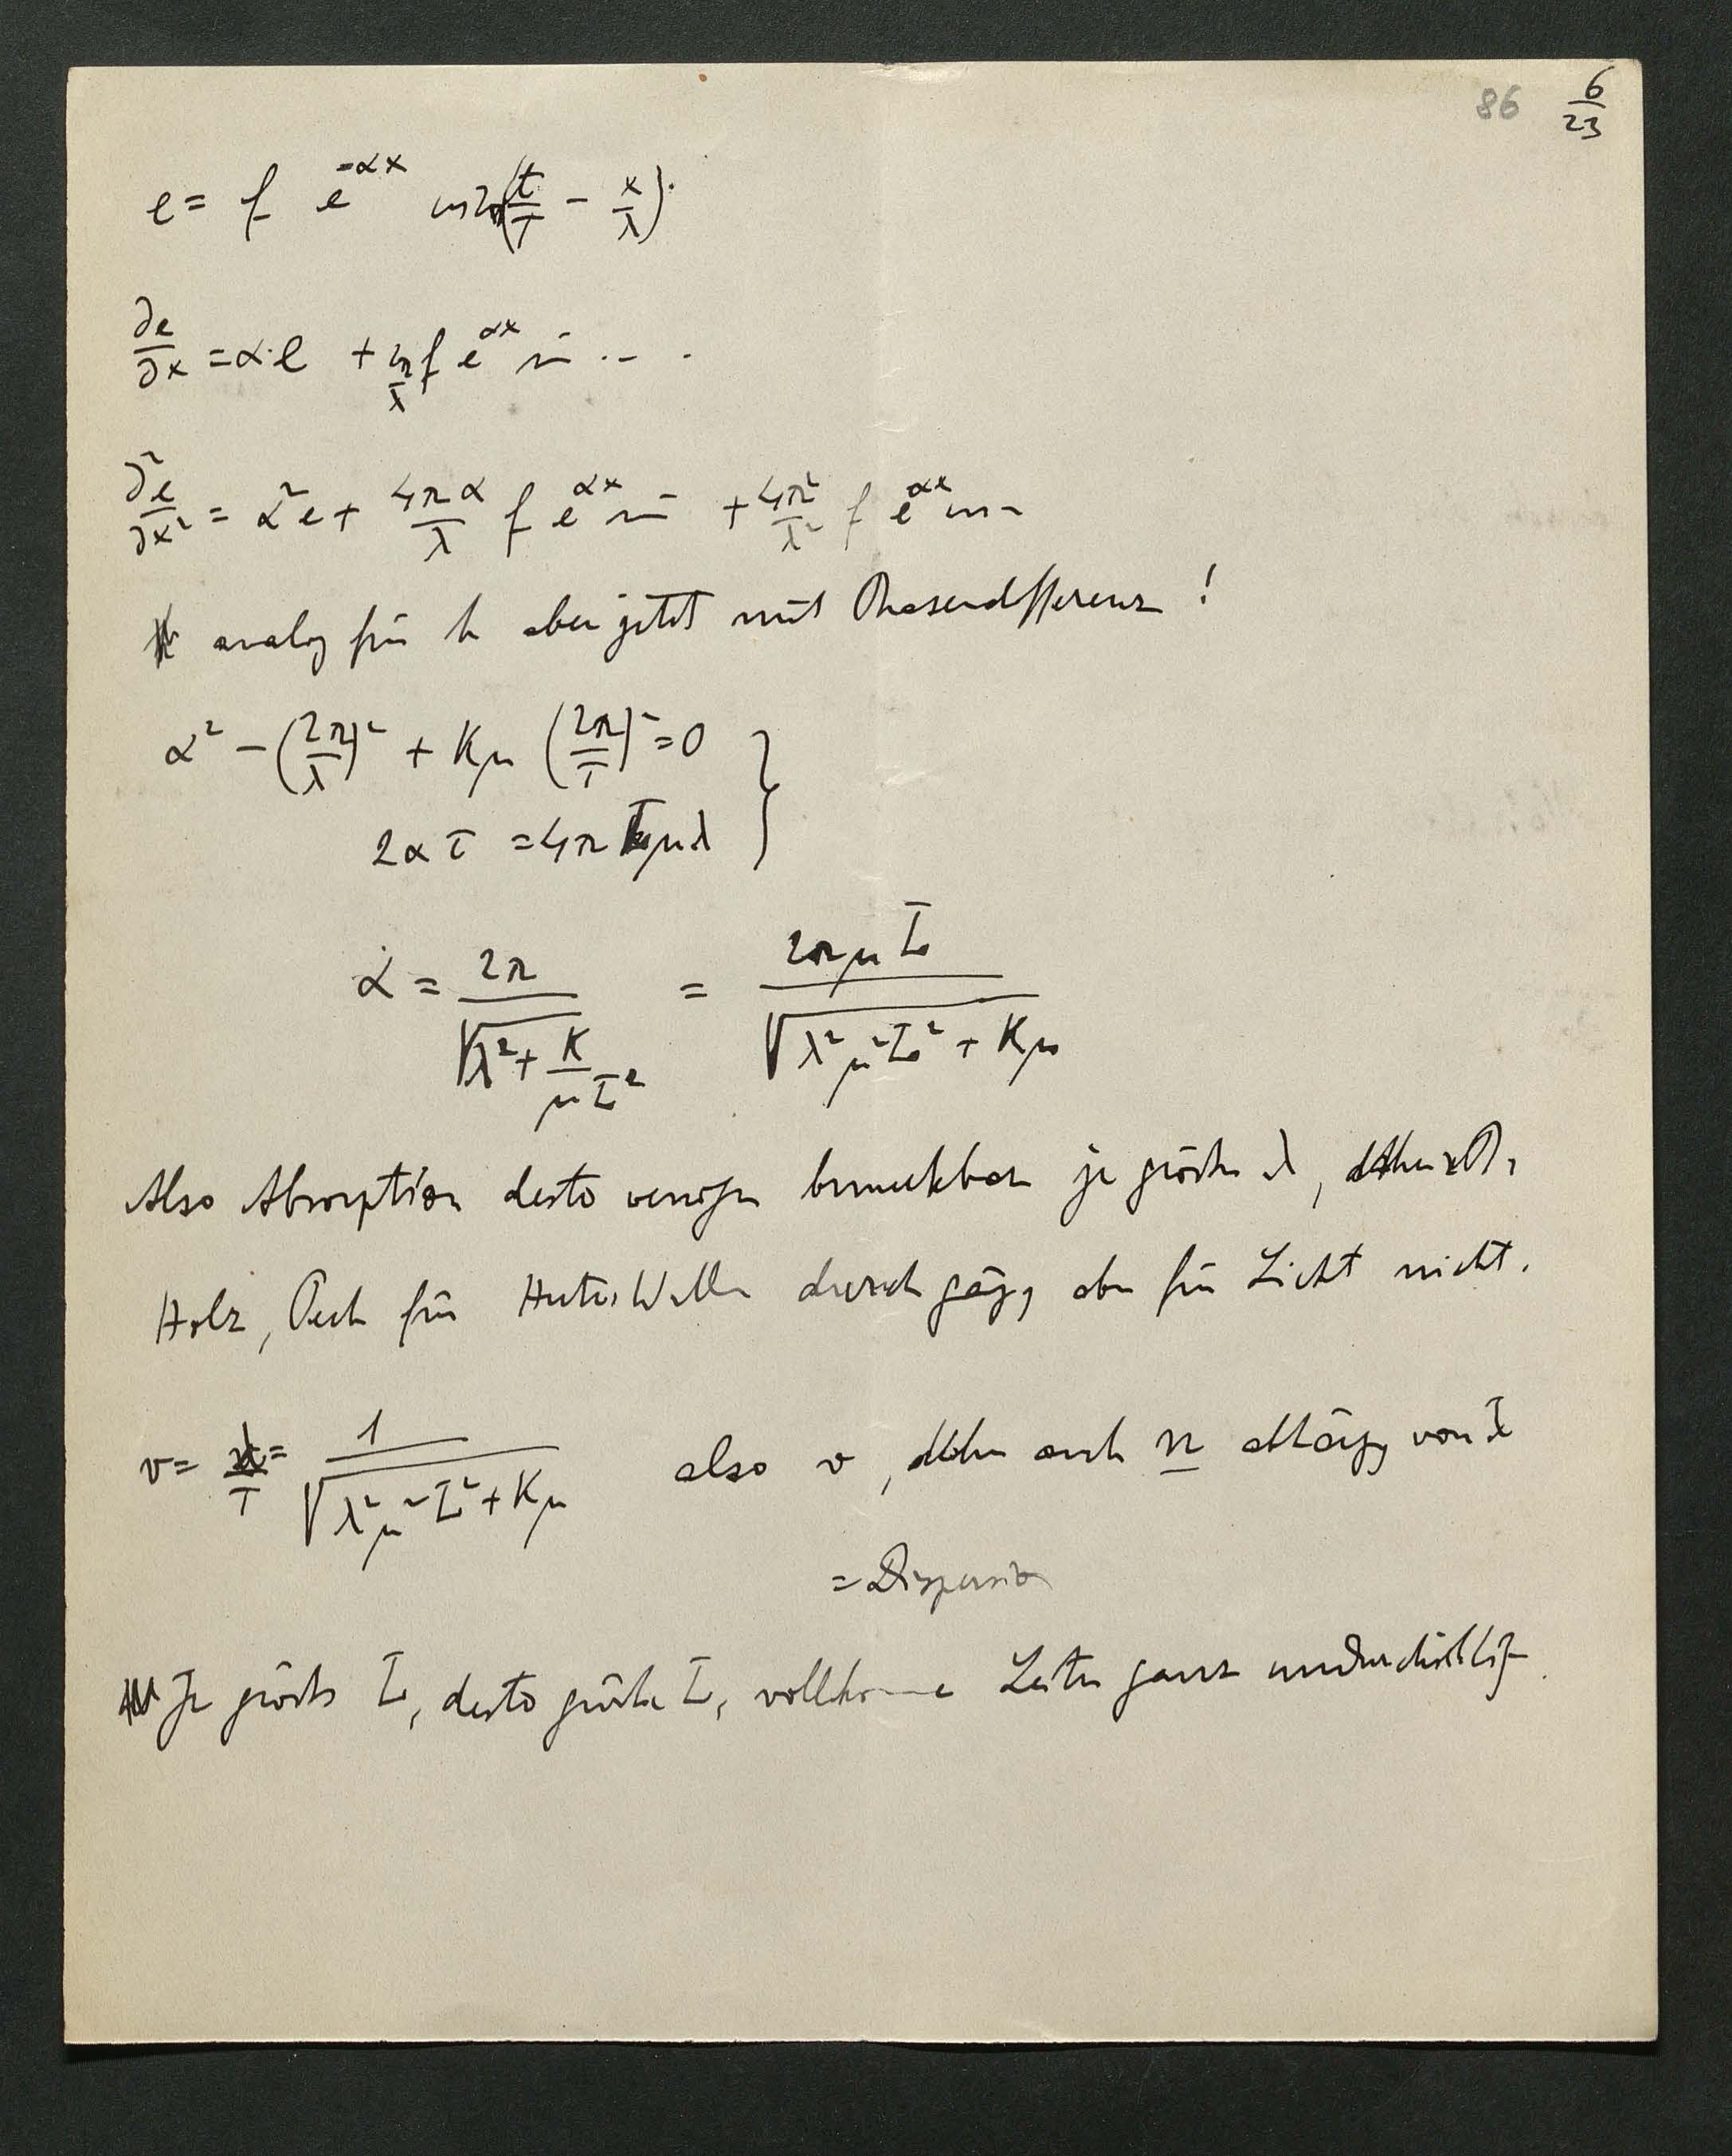 86 6/23
e = f e^{-αx} cos 2π(t/τ - x/λ).
∂e/∂x = α·e + 2π/λ f e^{αx} sin ...
∂²e/∂x² = α²e + 4πα/λ f e^{αx} sin + 4π²/λ² f e^{αx} cos
analog für h aber jetzt mit Phasendifferenz !
α² - (2π/λ)² + Kμ (2π/τ)² = 0 }
2ατ = 4π L μλ
α = 2π/√(λ² + K/(μL²)) = 2πμL/√(λ²μ²L² + Kμ)
Also Absorption desto weniger bemerkbar je größer λ, daher z.B.
Holz, Pech für Hertz. Wellen durchgäng, aber für Licht nicht.
v = λ/τ = 1/√(λ²μ²L² + Kμ) also v, daher auch n abhäng von λ
= Dispersion
Je größer L, desto größer L, vollkomme Leiter ganz undurchsichtig